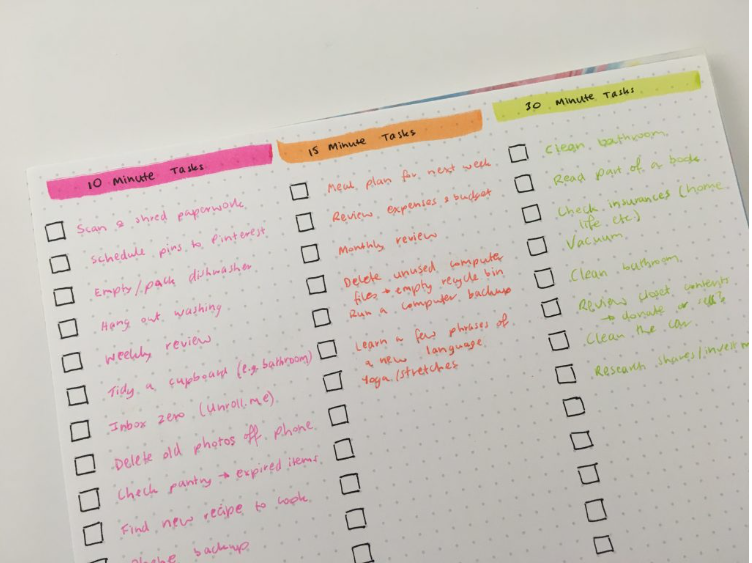 10 Minute Tasks
Scan & shred paperwork
Schedule pins to Pinterest
Empty/pack dishwasher
Hang out washing
Weekly review
Tidy a cupboard (e.g. bathroom)
Inbox zero (Unroll.me)
Delete old photos off phone
Check pantry → expired items
Find new recipe to cook
Phone backup
15 Minute Tasks
Meal plan for next week
Review expenses & budget
Monthly review
Delete unused computer
files + empty recycle bin
Run a computer backup
Learn a few phrases of
a new language
Yoga/stretches
30 Minute Tasks
Clean bathroom
Read part of a book
Check insurances (home,
life etc)
Vacuum
Clean bathroom
Review closet contents
→ donate or sell
Clean the car
Research shares/invest